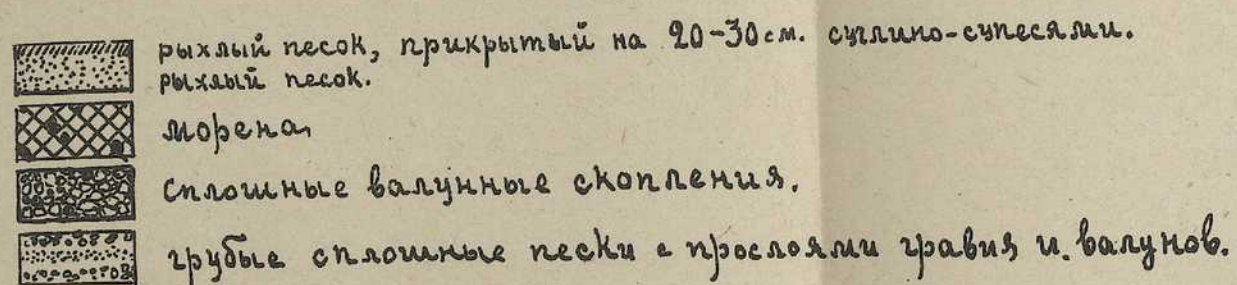 рыхлый песок, прикрытый на 20-30 см. суглино-супесями.
рыхлый песок.
морена
сплошные валунные скопления.
грубые сплошные пески с прослоями гравия и валунов.